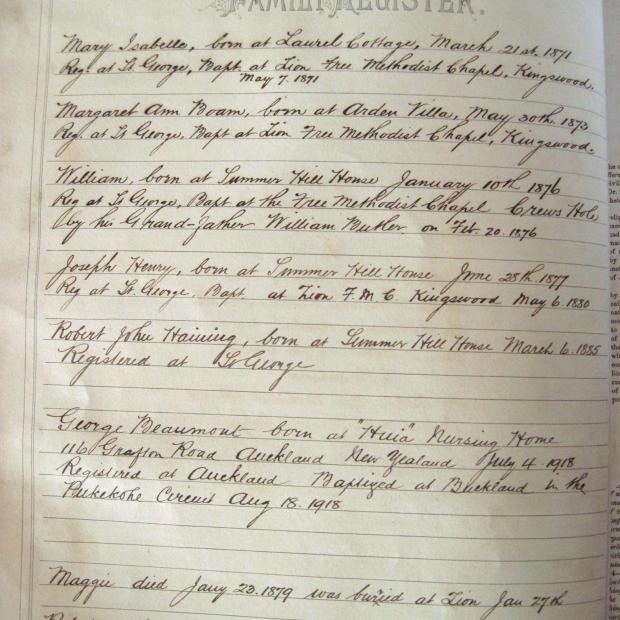 FAMILY REGISTER.
Mary Isabella, born at Laurel Cottage, March 21st. 1871
Reg. at St. George, Bapt. at Zion Free Methodist Chapel, Kingswood.
May 7. 1871
Margaret Ann Boam, born at Arden Villa, May 30th. 1873
Reg. at St George, Bapt at Zion Free Methodist Chapel, Kingswood.
William, born at Summer Hill House January 10th 1876
Reg at St George, Bapt at the Free Methodist Chapel Crews Hole
by his Grand-father William Butler on Feb. 20. 1876
Joseph Henry, born at Summer Hill House June 28th. 1877
Reg at St. George, Bapt. at Zion F. M. C. Kingswood May 6. 1880
Robert John Haining, born at Summer Hill House March 6. 1885
Registered at St George
George Beaumont born at "Huia" Nursing Home
116 Grafton Road Auckland New Zealand July 4. 1918
Registered at Auckland Baptized at Buckland in the
Pukekohe Circuit Aug 18. 1918
Maggie died Jany 23. 1879 was buried at Zion Jan 27th